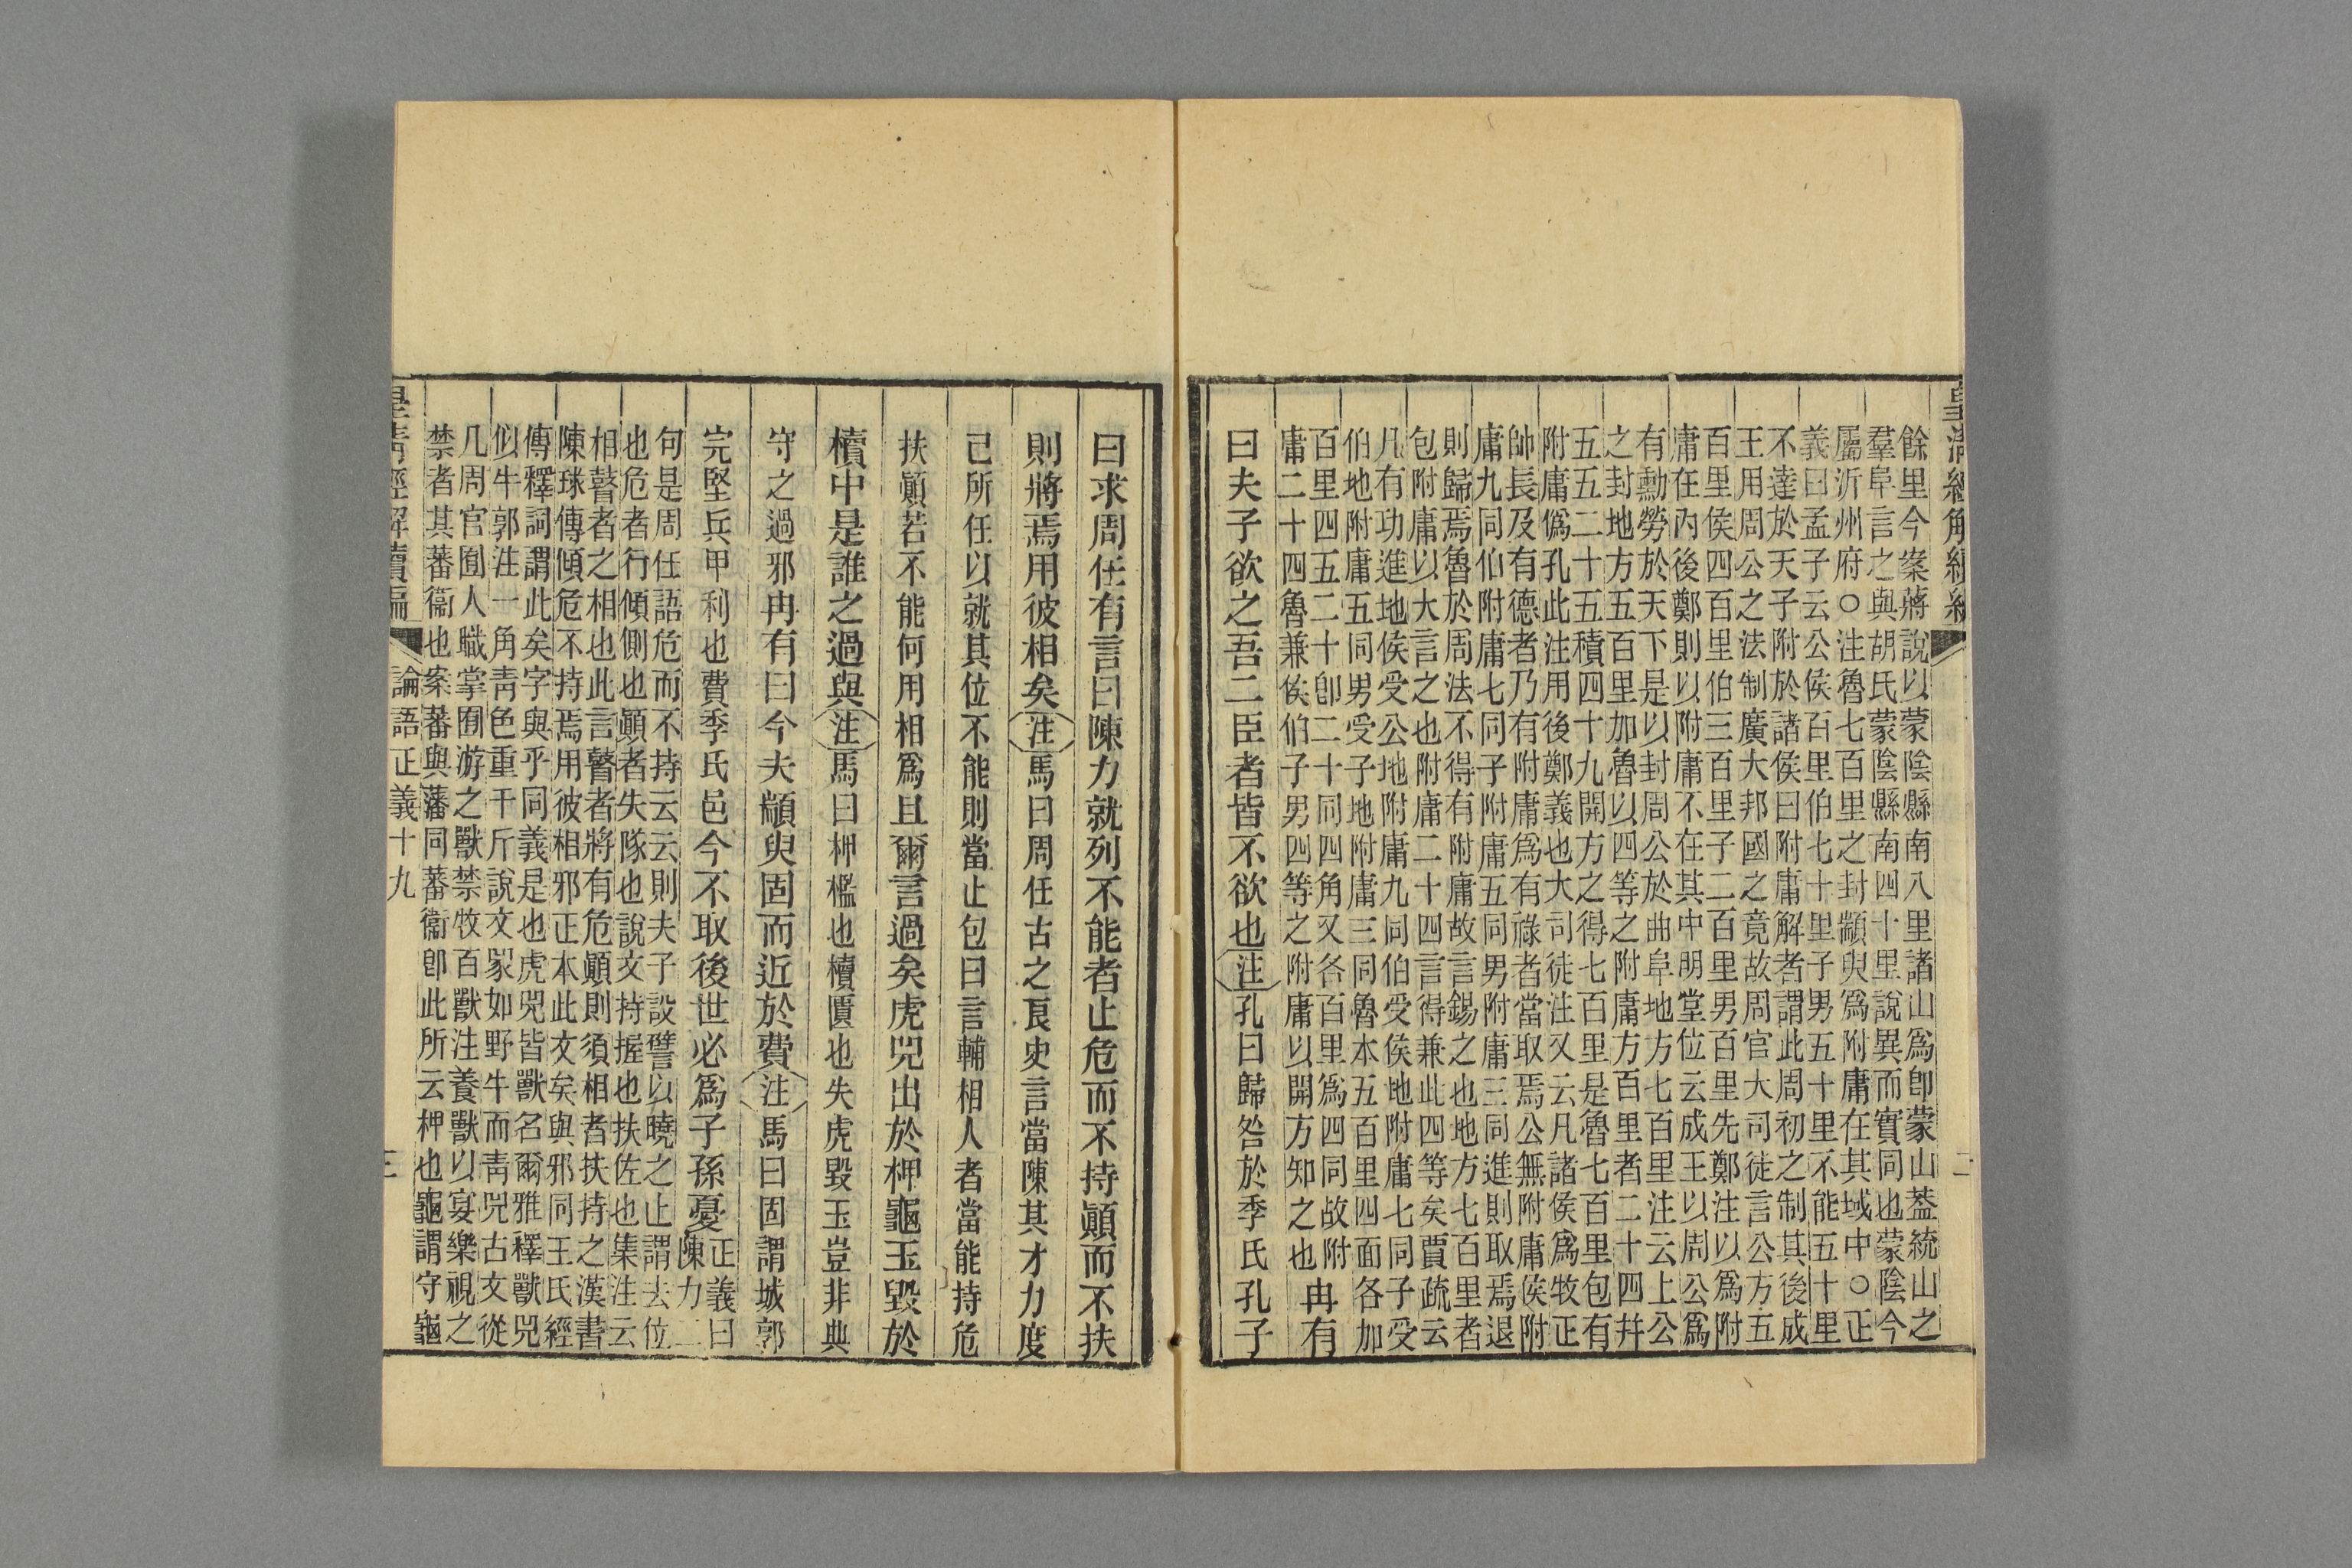 餘里今案蔣說以蒙陰縣南八里諸山爲卽蒙山葢統山之
羣阜言之與胡氏蒙陰縣南四十里說異而實同也蒙陰今
屬沂州府○注魯七百里之封顓臾爲附庸在其域中○正
義曰孟子云公侯百里伯七十里子男五十里不能五十里
不達於天子附於諸侯曰附庸解者謂此周初之制其後成
王用周公之法制廣大邦國之竟故周官大司徒言公方五
百里侯四百里伯三百里子二百里男百里先鄭注以爲附
庸在內後鄭則以附庸不在其中明堂位云成王以周公爲
有勳勞於天下是以封周公於曲阜地方七百里注云上公
之封地方五百里加魯以四等之附庸方百里者二十四幷
五五二十五積四十九開方之得七百里是魯七百里包有
附庸僞孔此注用後鄭義也大司徒注又云凡諸侯爲牧正
帥長及有德者乃有附庸爲有祿者當取焉公無附庸侯附
庸九同伯附庸七同子附庸五同男附庸三同進則取焉退
則歸焉魯於周法不得有附庸故言錫之也地方七百里者
包附庸以大言之也附庸二十四言得兼此四等矣賈疏云
凡有功進地侯受公地附庸九同伯受侯地附庸七同子受
伯地附庸五同男受子地附庸三同魯本五百里四面各加
百里四五二十卽二十同四角又各百里爲四同故附
庸二十四魯兼侯伯子男四等之附庸以開方知之也
冉有
曰夫子欲之吾二臣者皆不欲也注孔曰歸咎於季氏孔子
曰求周任有言曰陳力就列不能者止危而不持顚而不扶
則將焉用彼相矣注馬曰周任古之良史言當陳其才力度
己所任以就其位不能則當止包曰言輔相人者當能持危
扶顚若不能何用相爲且爾言過矣虎兕出於柙龜玉毀於
櫝中是誰之過與注馬曰柙檻也櫝匱也失虎毀玉豈非典
守之過邪冉有曰今夫顓臾固而近於費注馬曰固謂城郭
完堅兵甲利也費季氏邑今不取後世必爲子孫憂
正義曰
陳力二
句是周任語危而不持云云則夫子設譬以曉之止謂去位
也危者行傾側也顚者失隊也說文持握也扶佐也集注云
相瞽者之相也此言瞽者將有危顚則須相者扶持之漢書
陳球傳傾危不持焉用彼相邪正本此文矣與邪同王氏經
傳釋詞謂此矣字與乎同義是也虎兕皆獸名爾雅釋獸兕
似牛郭注一角靑色重千斤說文𤉡如野牛而靑兕古文從
几周官囿人職掌囿游之獸禁牧百獸注養獸以宴樂視之
禁者其蕃衞也案蕃與藩同蕃衞卽此所云柙也龜謂守龜
論語正義十九
三